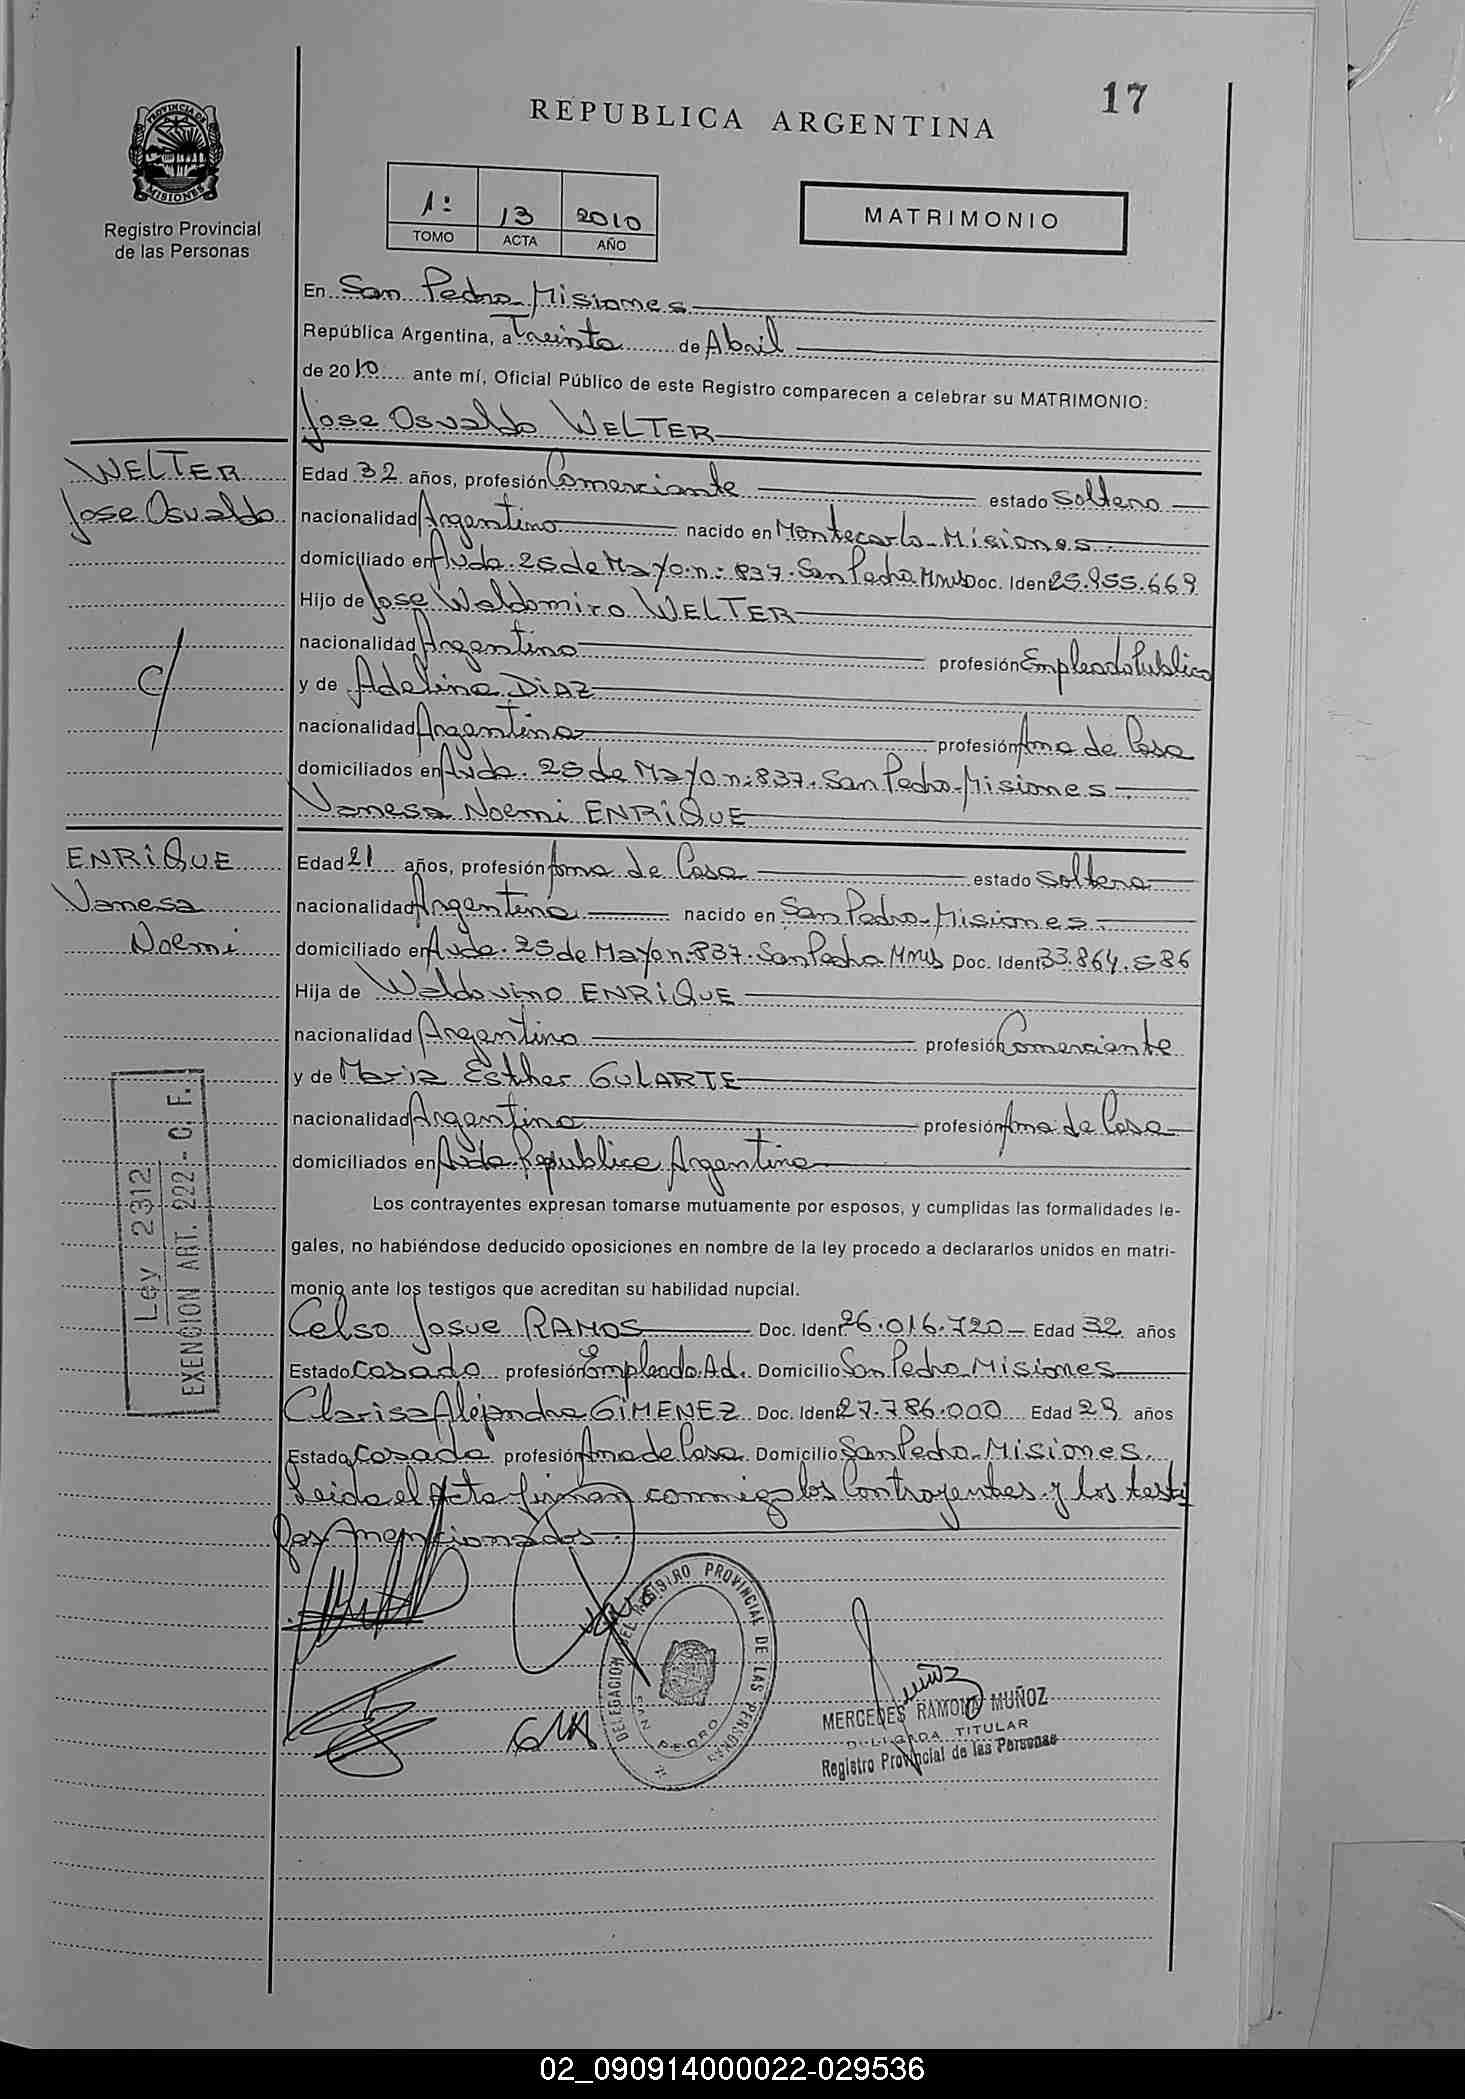 17
REPUBLICA ARGENTINA
PROVINCIA DE
MISIONES
Registro Provincial
de las Personas
1º 13 2010
TOMO ACTA AÑO
MATRIMONIO
En San Pedro - Misiones
República Argentina, a Treinta de Abril
de 2010 ante mí, Oficial Público de este Registro comparecen a celebrar su MATRIMONIO:
Jose Osvaldo WELTER
WELTER
Jose Osvaldo
c/
Edad 32 años, profesión Comerciante estado soltero
nacionalidad Argentino nacido en Montecarlo - Misiones
domiciliado en Avda. 25 de Mayo n: 837. San Pedro Mnes Doc. Ident 25.955.669
Hijo de Jose Waldomiro WELTER
nacionalidad Argentino profesión Empleado Publico
y de Adelina DIAZ
nacionalidad Argentina profesión Ama de Casa
domiciliados en Avda. 25 de Mayo n: 837. San Pedro - Misiones
Vanesa Noemi ENRiQUE
ENRiQUE
Vanesa
Noemi
Edad 21 años, profesión Ama de Casa estado soltera
nacionalidad Argentina nacido en San Pedro - Misiones
domiciliado en Avda. 25 de Mayo n: 837. San Pedro Mnes Doc. Ident 33.864.586
Hija de Waldovino ENRiQUE
nacionalidad Argentino profesión Comerciante
y de Maria Esther GULARTE
nacionalidad Argentina profesión Ama de Casa
domiciliados en Avda. Republica Argentina
Los contrayentes expresan tomarse mutuamente por esposos, y cumplidas las formalidades le-
gales, no habiéndose deducido oposiciones en nombre de la ley procedo a declararlos unidos en matri-
monio ante los testigos que acreditan su habilidad nupcial.
Ley 2312
EXENCION ART. 222 - C. F.
Celso Josue RAMOS Doc. Ident. 26.016.720 Edad 32 años
Estado casado profesión Empleado Ad. Domicilio San Pedro Misiones
Clarisa Alejandra GIMENEZ Doc. Ident 27.786.000 Edad 29 años
Estado casada profesión Ama de Casa Domicilio San Pedro - Misiones
Leida el Acta firman conmigo los Contrayentes y los testi
gos mencionados.
DELEGACION DEL REGISTRO PROVINCIAL DE LAS PERSONAS
SAN PEDRO
Muñoz
MERCEDES RAMONA MUÑOZ
DELEGADA TITULAR
Registro Provincial de las Personas
02_090914000022-029536